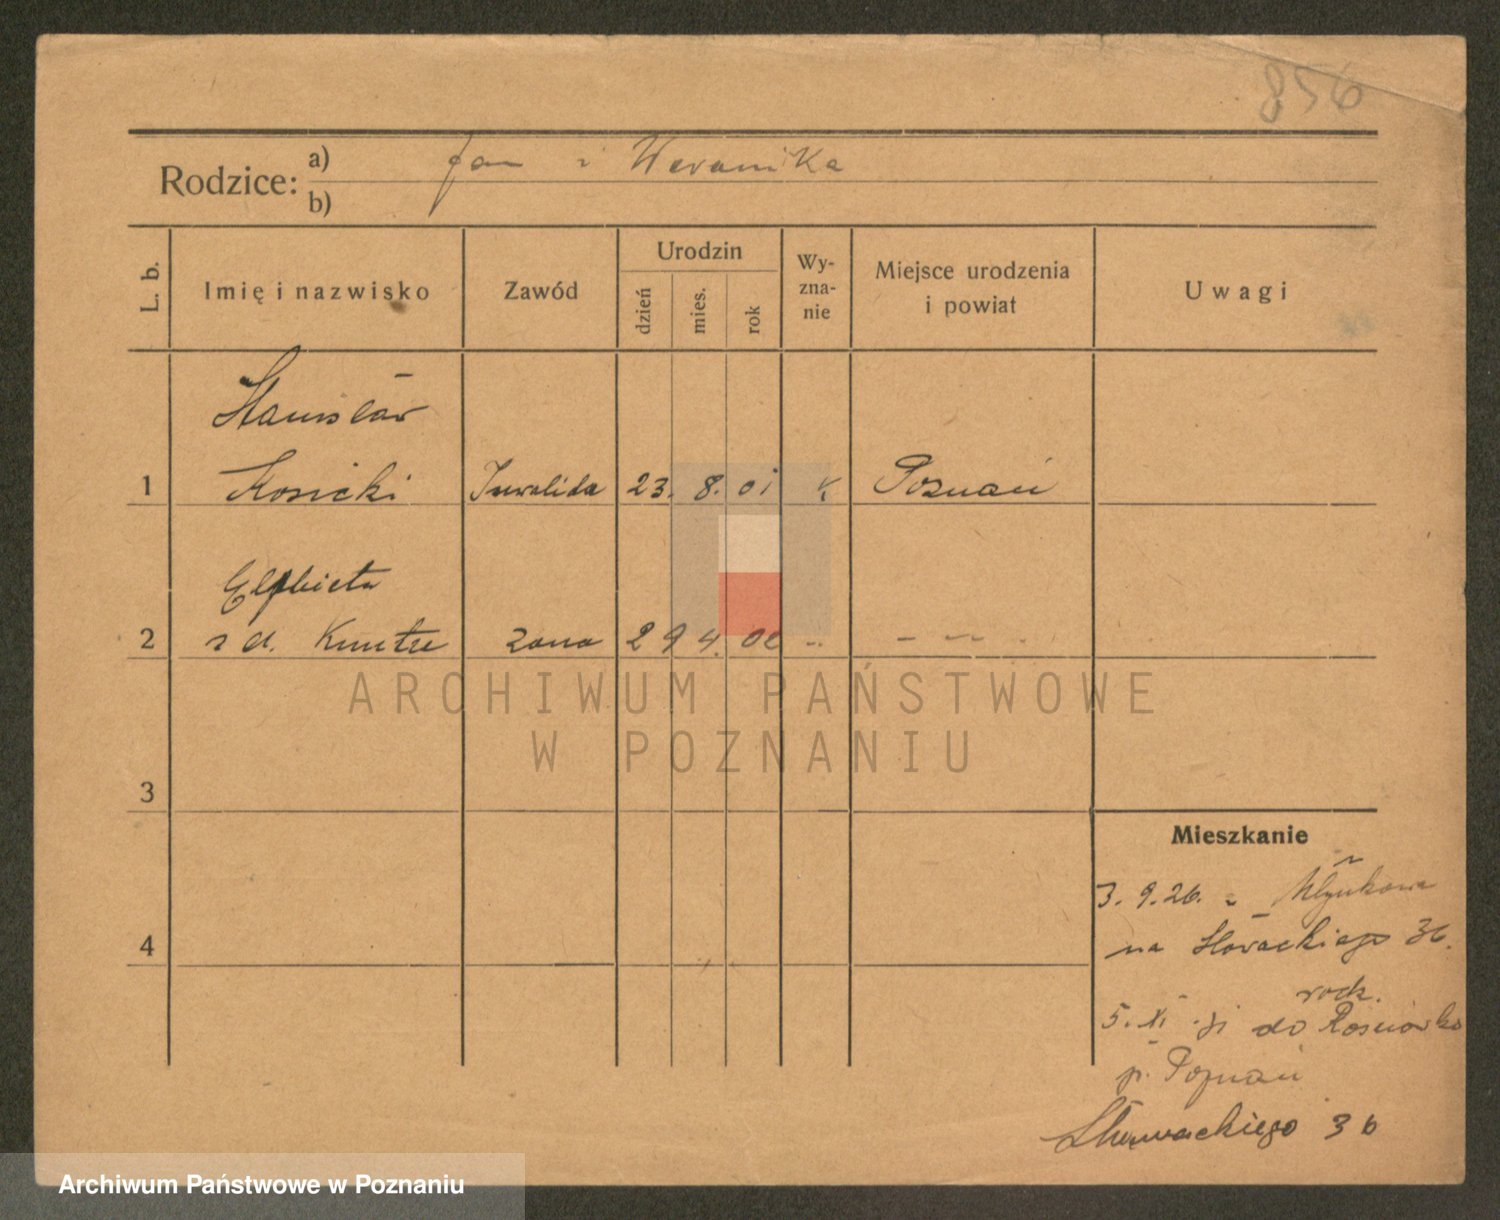 856
Rodzice: a) Jan i Weronika
b)
L. b.
Imię i nazwisko
Zawód
Urodzin
dzień
mies.
rok
Wy-
zna-
nie
Miejsce urodzenia
i powiat
Uwagi
Stanisław
1 Kosicki Inwalida 23. 8. 01 K Poznań
Elżbieta
2 z d. żona 29 4. 00 -"- - -"-
3
4
Mieszkanie
3. 9. 26. z
na Słowackiego 36.
rodz.
5. XI. do Rosnówko
p. Poznań
Słowackiego 36
ARCHIWUM PAŃSTWOWE
W POZNANIU
Archiwum Państwowe w Poznaniu